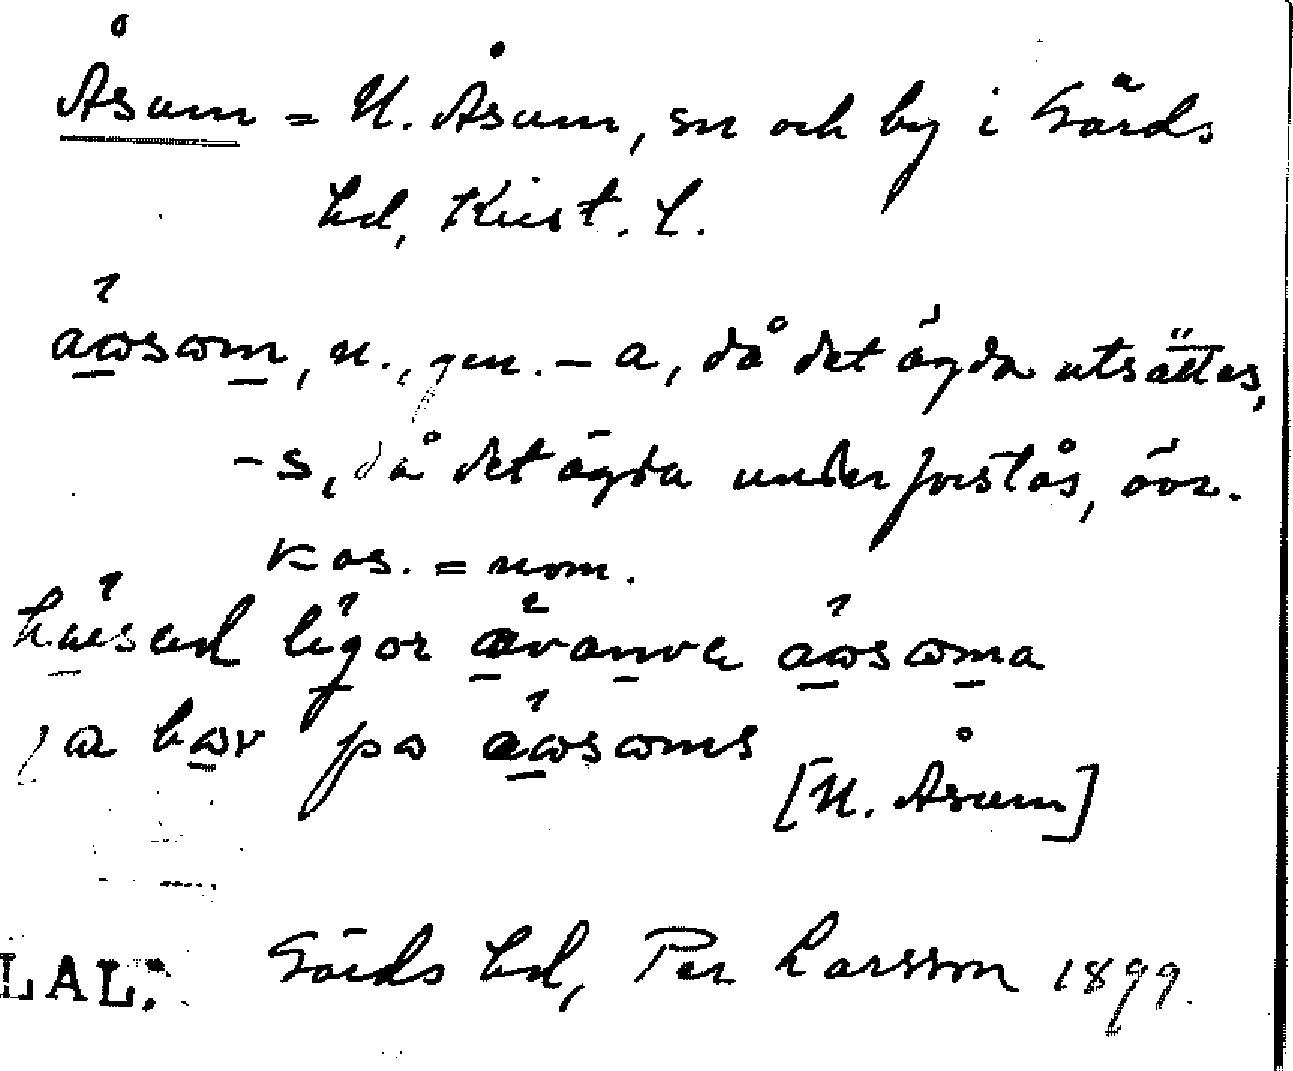 Åsum = N. Åsum, sn och by i Gärds
hd, Krist. l.
åosom, n., gen. -a, då det ägda utsättes,
-s, då det ägda underförstås, övr.
kas. = nom.
ligor åosoma
på åosoms
[N. Åsum]
LAL: Gärds hd, Per Larsson 1899.